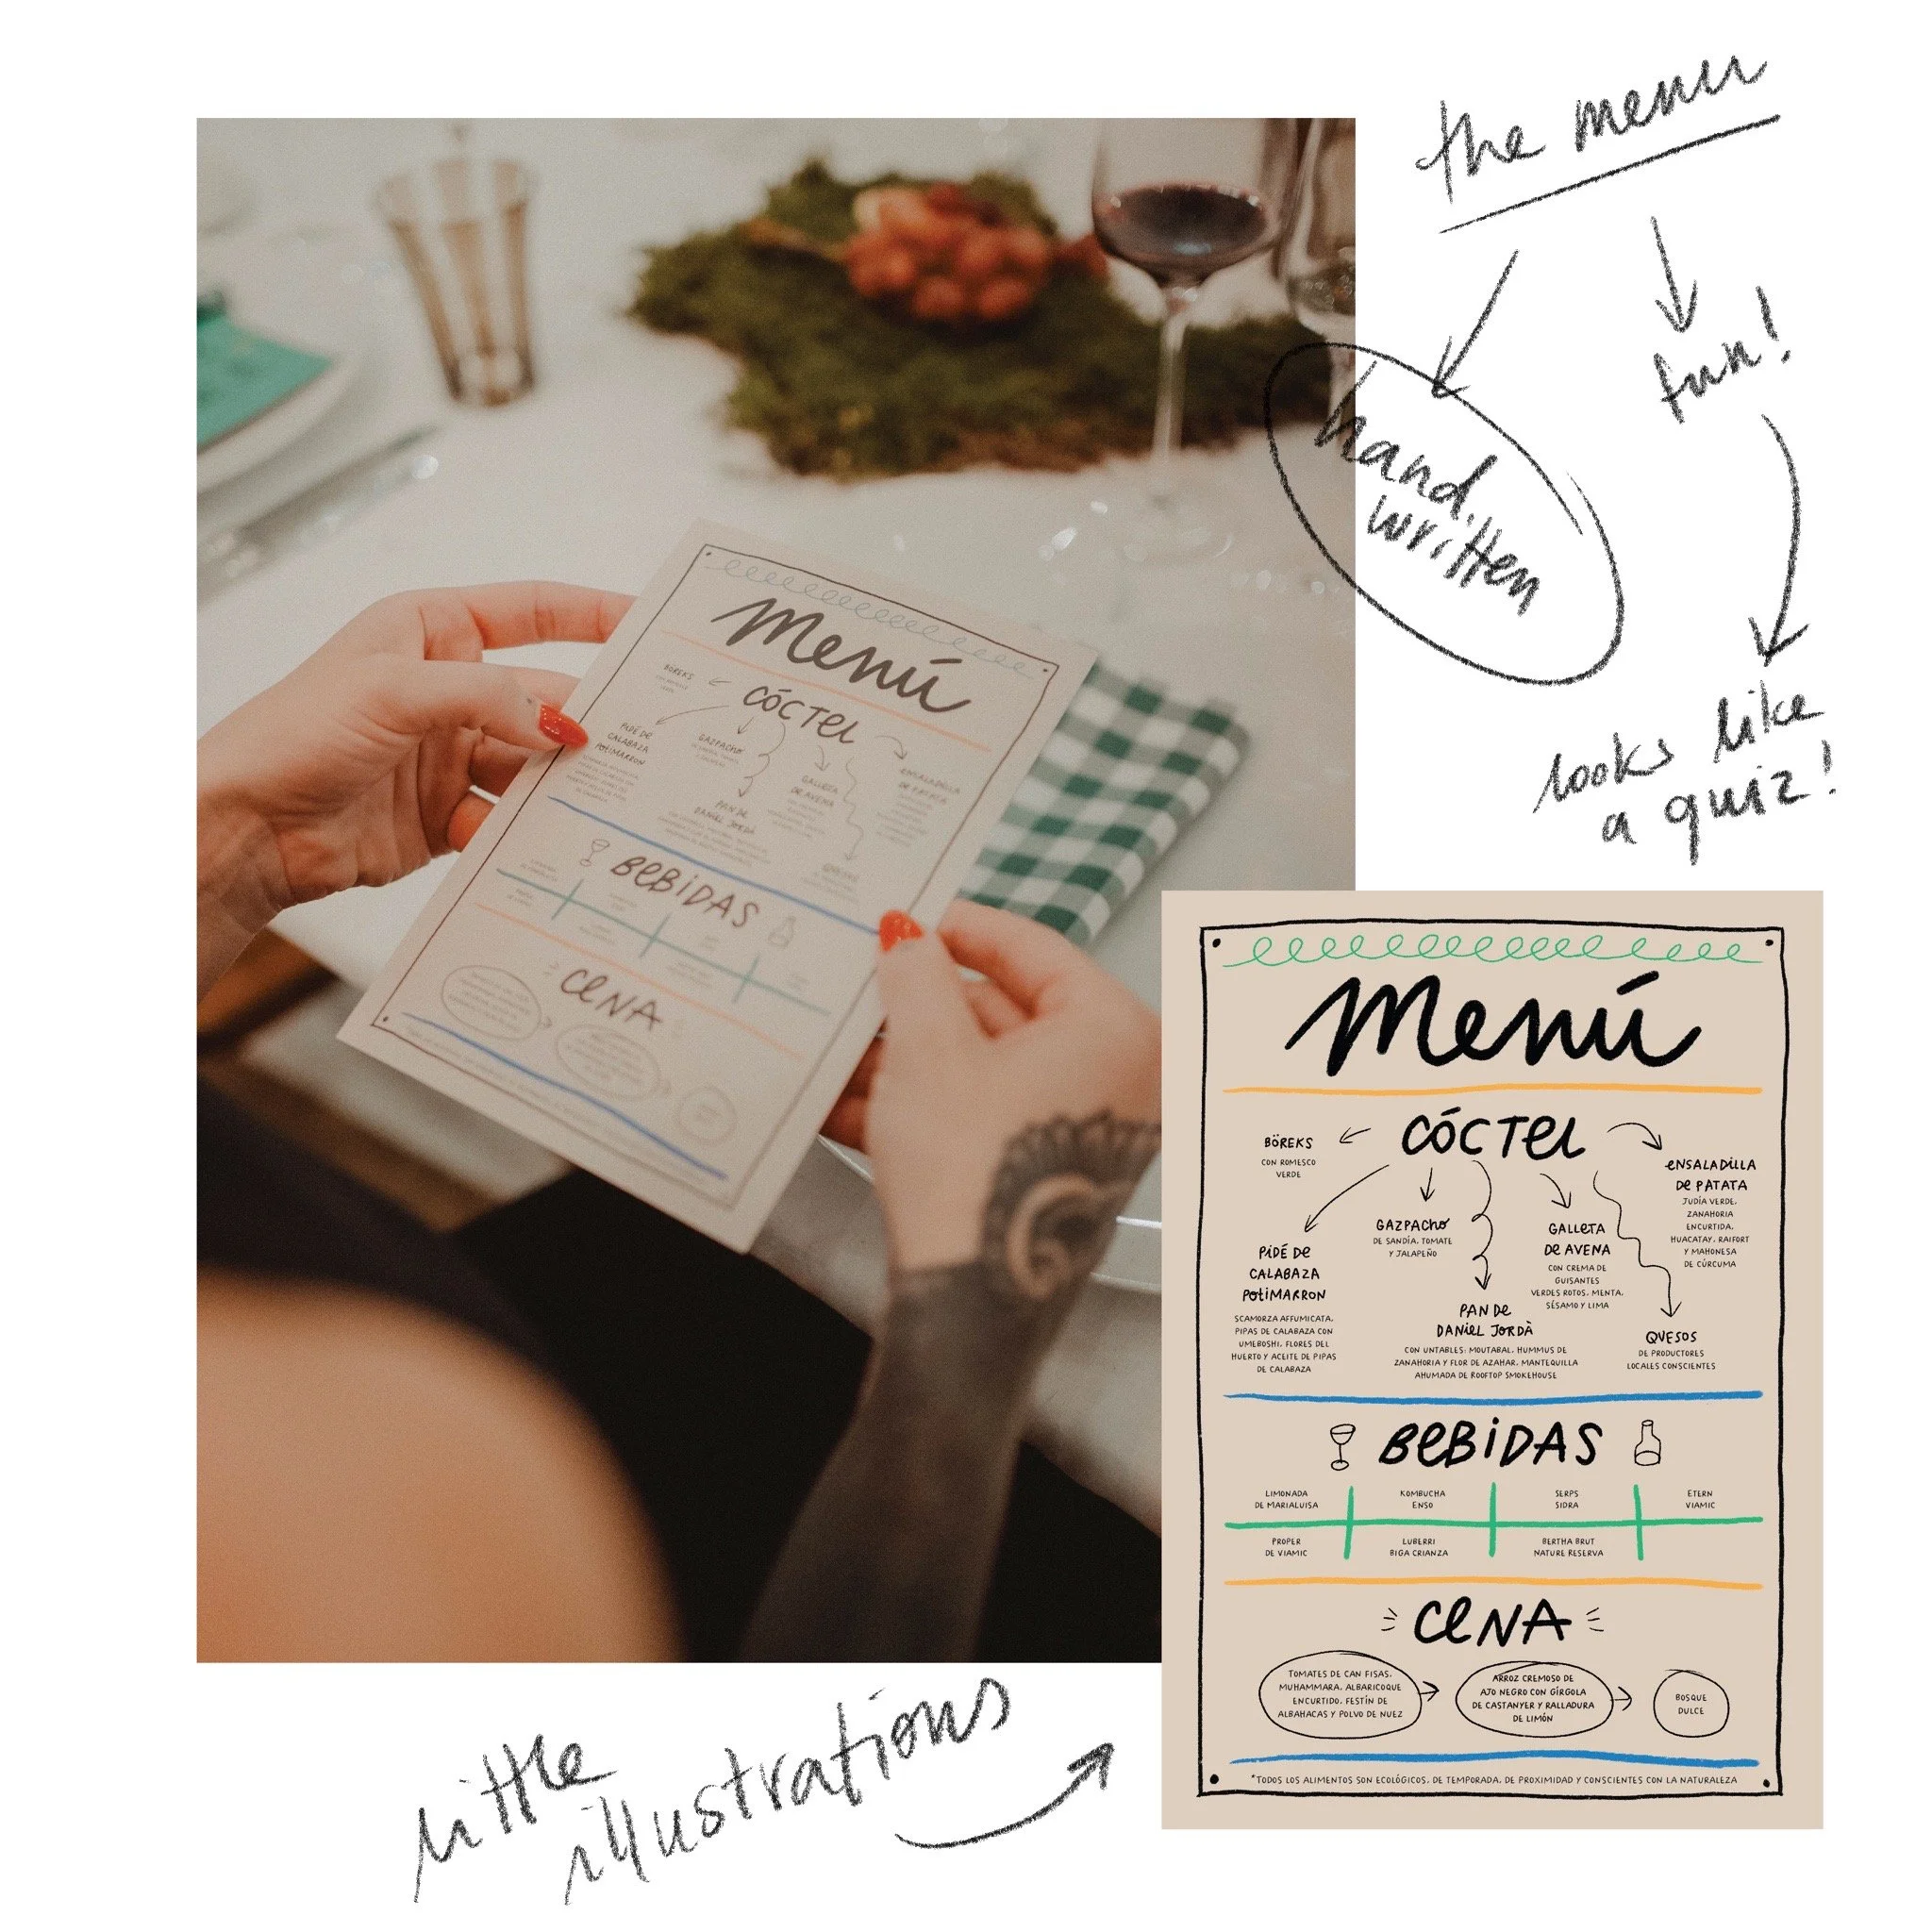 the menu
fun!
hand
written
looks like
a quiz!
Menú
CÓCTEL
BÖREKS
PIDÉ DE
CALABAZA
POTIMARRON
GAZPACHO
PAN DE
DANIEL JORDÀ
GALLETA
DE AVENA
ENSALADILLA
DE PATATA
BEBIDAS
CENA
Menú
CÓCTEL
BÖREKS
CON ROMESCO
VERDE
PIDÉ DE
CALABAZA
POTIMARRON
SCAMORZA AFFUMICATA,
PIPAS DE CALABAZA CON
UMEBOSHI, FLORES DEL
HUERTO Y ACEITE DE PIPAS
DE CALABAZA
GAZPACHO
DE SANDÍA, TOMATE
Y JALAPEÑO
PAN DE
DANIEL JORDÀ
CON UNTABLES: MOUTABAL, HUMMUS DE
ZANAHORIA Y FLOR DE AZAHAR, MANTEQUILLA
AHUMADA DE ROOFTOP SMOKEHOUSE
GALLETA
DE AVENA
CON CREMA DE
GUISANTES
VERDES ROTOS, MENTA,
SÉSAMO Y LIMA
ENSALADILLA
DE PATATA
JUDÍA VERDE,
ZANAHORIA
ENCURTIDA,
HUACATAY, RAIFORT
Y MAHONESA
DE CÚRCUMA
QUESOS
DE PRODUCTORES
LOCALES CONSCIENTES
BEBIDAS
LIMONADA
DE MARIALUISA
KOMBUCHA
ENSO
SERPS
SIDRA
ETERN
VIAMIC
PROPER
DE VIAMIC
LUBERRI
BIGA CRIANZA
BERTHA BRUT
NATURE RESERVA
CENA
TOMATES DE CAN FISAS,
MUHAMMARA, ALBARICOQUE
ENCURTIDO, FESTÍN DE
ALBAHACAS Y POLVO DE NUEZ
ARROZ CREMOSO DE
AJO NEGRO CON GÍRGOLA
DE CASTANYER Y RALLADURA
DE LIMÓN
BOSQUE
DULCE
*TODOS LOS ALIMENTOS SON ECOLÓGICOS, DE TEMPORADA, DE PROXIMIDAD Y CONSCIENTES CON LA NATURALEZA
little
illustrations